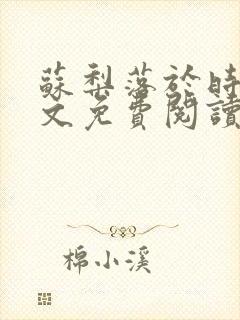 蘇梨落於時
文免費閱讀
棉小溪